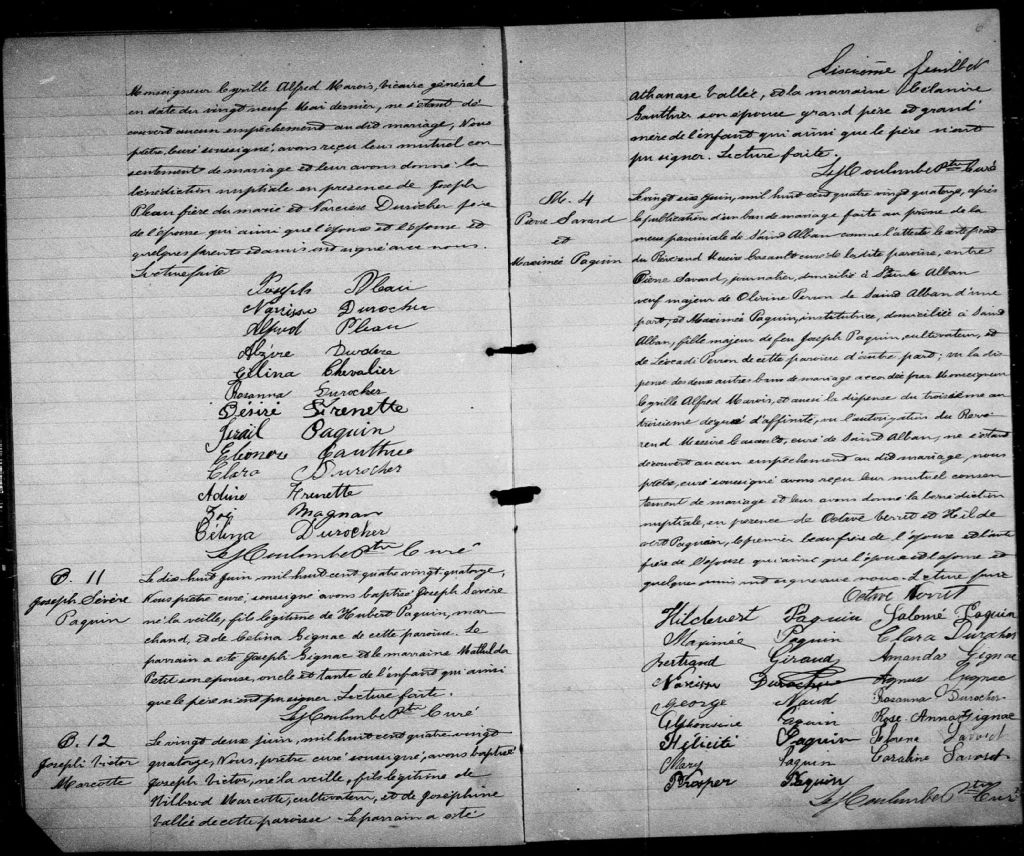 Monseigneur Cyrille Alfred Marois, Vicaire général
en date du vingt neuf Mai dernier, ne s'étant dé
couvert aucun empêchement au dit mariage, Nous
prêtre, curé soussigné, avons reçu leur mutuel con
sentement de mariage et leur avons donné la
bénédiction nuptiale en présence de Joseph
Pleau frère du marié et Narcisse Durocher père
de l'épouse qui ainsi que l'époux et l'épouse et
quelques parents et amis ont signé avec nous.
Lecture faite
Joseph Pleau
Narcisse Durocher
Alfred Pleau
Alzire
Célina Chevalier
Rosanna Durocher
Désiré Frenette
Israïl Paquin
Eléonore Gauthier
Clara Durocher
Adine Frenette
Zoé Magnan
Célina Durocher
LeJCoulombe Ptre Curé
B. 11
Joseph Sévère
Paquin
Le dix-huit Juin, mil huit cent quatre vingt-quatorze,
Nous prêtre curé, soussigné avons baptisé Joseph Sévère
né la veille, fils légitime de Hubert Paquin, mar
chand, et de Célina Gignac de cette paroisse. Le
parrain a été Joseph Gignac et la marraine Mathilda
Petit son épouse, oncle et tante de l'enfant qui ainsi
que le père n'ont pu signer. Lecture faite.
LeJCoulombe Ptre Curé
B. 12
Joseph Victor
Marcotte
Le vingt deux juin, mil huit cent quatre vingt
quatorze, Nous, prêtre curé soussigné, avons baptisé
Joseph Victor, né la veille, fils légitime de
Wilbrod Marcotte, cultivateur, et de Joséphine
Vallée de cette paroisse - Le parrain a été
6
Sixième feuillet
Athanase Vallée, et la marraine Mélanire
Gauthier son épouse grand père et grand'
mère de l'enfant qui ainsi que le père n'ont
pu signer. Lecture faite.
LeJCoulombe Ptre Curé
M. 4
Pierre Savard
et
Maximée Paquin
Le vingt six Juin, mil huit cent quatre vingt quatorze, après
la publication d'un ban de mariage faite au prône de la
messe paroissiale de Saint Alban comme l'atteste le certificat
du Révérend Messire Casault curé de la dite paroisse, entre
Pierre Savard, journalier, domicilié à Saint Alban
veuf majeur de Olivine Perron de Saint Alban d'une
part; et Maximée Paquin, institutrice, domiciliée à Saint
Alban, fille majeur de feu Joseph Paquin, cultivateur, et
de Léocadi Perron de cette paroisse d'autre part; vu la dis
pense des deux autres bans de mariage accordée par Monseigneur
Cyrille Alfred Marois, et aussi la dispense du troisième au
troisième degré d'affinité, vu l'autorisation du Révé
rend Messire Casault, curé de Saint Alban, ne s'étant
découvert aucun empêchement au dit mariage, nous
prêtre, curé soussigné avons reçu leur mutuel consen
tement de mariage et leur avons donné la bénédiction
nuptiale, en présence de Octave Verret et Hilde
vert Paquin, le premier beau frère de l'époux et l'autre
frère de l'épouse qui ainsi que l'époux et l'épouse et
quelques amis ont signé avec nous - Lecture faite
Octave Verret
Hildevert Paquin Salomé Paquin
Maximée Paquin Clara Durocher
Bertrand Giraud Amanda Gignac
Narcisse Durocher Agnus Gignac
George Naud Rosanna Durocher
Alphonsine Paquin Rose-Anna Gignac
Félicité Paquin Savard
Mary Paquin Caroline Savard
Prosper Paquin
LeJCoulombe Ptre Curé